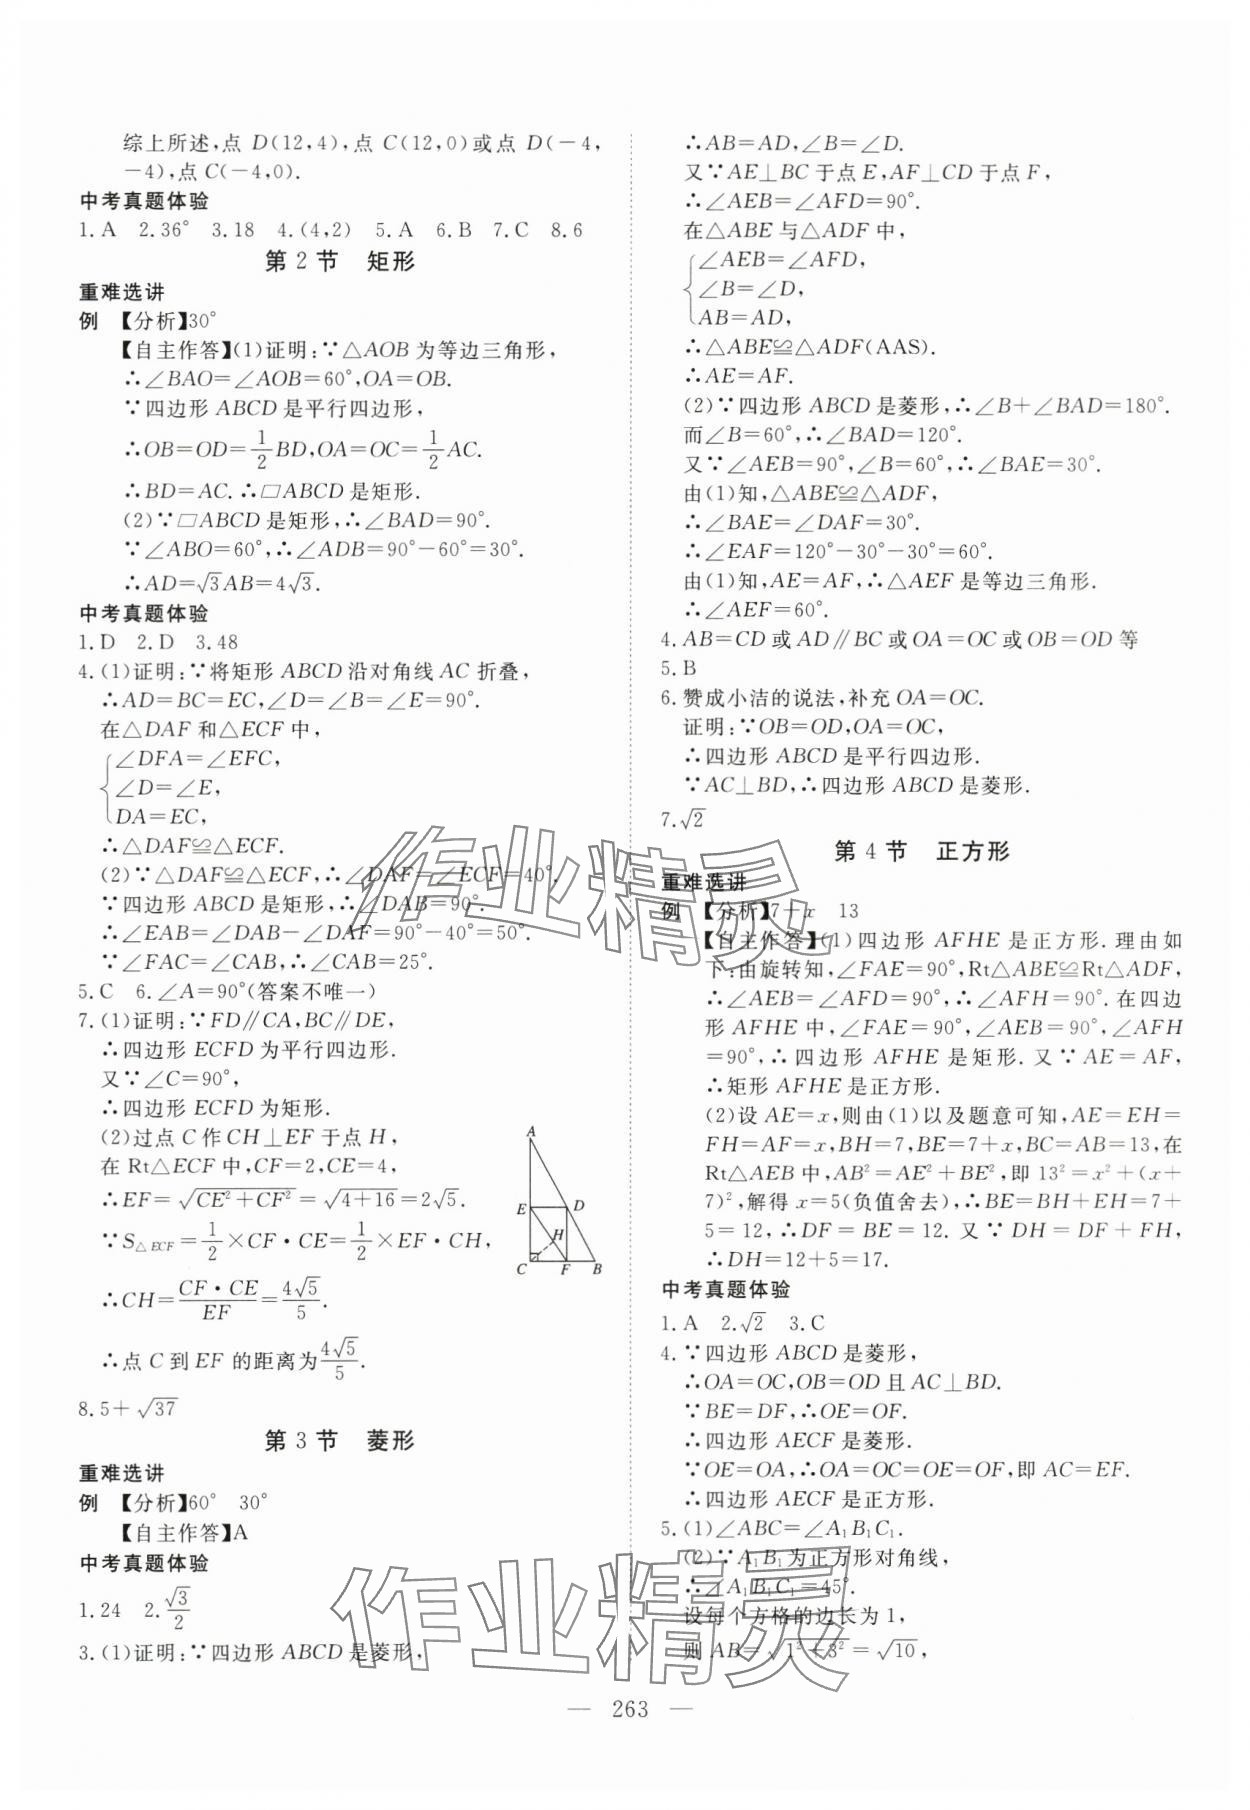 综上所述,点 D(12,4),点 C(12,0)或点 D(-4,
-4),点 C(-4,0).
中考真题体验
1.A 2.36° 3.18 4.(4,2) 5.A 6.B 7.C 8.6
第 2 节 矩形
重难选讲
例 【分析】30°
【自主作答】(1)证明:∵△AOB 为等边三角形,
∴∠BAO=∠AOB=60°,OA=OB.
∵四边形 ABCD 是平行四边形,
∴OB=OD=1/2BD,OA=OC=1/2AC.
∴BD=AC.∴▱ABCD 是矩形.
(2)∵▱ABCD 是矩形,∴∠BAD=90°.
∵∠ABO=60°,∴∠ADB=90°-60°=30°.
∴AD=√3AB=4√3.
中考真题体验
1.D 2.D 3.48
4.(1)证明:∵将矩形 ABCD 沿对角线 AC 折叠,
∴AD=BC=EC,∠D=∠B=∠E=90°.
在△DAF 和△ECF 中,
∠DFA=∠EFC,
∠D=∠E,
DA=EC,
∴△DAF≌△ECF.
(2)∵△DAF≌△ECF,∴∠DAF=∠ECF=40°.
∵四边形 ABCD 是矩形,∴∠DAB=90°.
∴∠EAB=∠DAB-∠DAF=90°-40°=50°.
∵∠FAC=∠CAB,∴∠CAB=25°.
5.C 6.∠A=90°(答案不唯一)
7.(1)证明:∵FD∥CA,BC∥DE,
∴四边形 ECFD 为平行四边形.
又∵∠C=90°,
∴四边形 ECFD 为矩形.
(2)过点 C 作 CH⊥EF 于点 H,
在 Rt△ECF 中,CF=2,CE=4,
∴EF=√(CE²+CF²)=√(4+16)=2√5.
∵S△ECF=1/2×CF·CE=1/2×EF·CH,
∴CH=CF·CE/EF=4√5/5.
∴点 C 到 EF 的距离为4√5/5.
A
E
D
H
C
F
B
8.5+√37
第 3 节 菱形
重难选讲
例 【分析】60° 30°
【自主作答】A
中考真题体验
1.24 2.√3/2
3.(1)证明:∵四边形 ABCD 是菱形,
∴AB=AD,∠B=∠D.
又∵AE⊥BC 于点 E,AF⊥CD 于点 F,
∴∠AEB=∠AFD=90°.
在△ABE 与△ADF 中,
∠AEB=∠AFD,
∠B=∠D,
AB=AD,
∴△ABE≌△ADF(AAS).
∴AE=AF.
(2)∵四边形 ABCD 是菱形,∴∠B+∠BAD=180°.
而∠B=60°,∴∠BAD=120°.
又∵∠AEB=90°,∠B=60°,∴∠BAE=30°.
由(1)知,△ABE≌△ADF,
∴∠BAE=∠DAF=30°.
∴∠EAF=120°-30°-30°=60°.
由(1)知,AE=AF,∴△AEF 是等边三角形.
∴∠AEF=60°.
4.AB=CD 或 AD∥BC 或 OA=OC 或 OB=OD 等
5.B
6.赞成小洁的说法,补充 OA=OC.
证明:∵OB=OD,OA=OC,
∴四边形 ABCD 是平行四边形.
∵AC⊥BD,∴四边形 ABCD 是菱形.
7.√2
第 4 节 正方形
重难选讲
例 【分析】7+x 13
【自主作答】(1)四边形 AFHE 是正方形.理由如
下:由旋转知,∠FAE=90°,Rt△ABE≌Rt△ADF,
∴∠AEB=∠AFD=90°,∴∠AFH=90°.在四边
形 AFHE 中,∠FAE=90°,∠AEB=90°,∠AFH
=90°,∴四边形 AFHE 是矩形.又∵AE=AF,
∴矩形 AFHE 是正方形.
(2)设 AE=x,则由(1)以及题意可知,AE=EH=
FH=AF=x,BH=7,BE=7+x,BC=AB=13,在
Rt△AEB 中,AB²=AE²+BE²,即 13²=x²+(x+
7)²,解得 x=5(负值舍去),∴BE=BH+EH=7+
5=12,∴DF=BE=12.又∵DH=DF+FH,
∴DH=12+5=17.
中考真题体验
1.A 2.√2 3.C
4.∵四边形 ABCD 是菱形,
∴OA=OC,OB=OD 且 AC⊥BD.
∵BE=DF,∴OE=OF.
∴四边形 AECF 是菱形.
∵OE=OA,∴OA=OC=OE=OF,即 AC=EF.
∴四边形 AECF 是正方形.
5.(1)∠ABC=∠A₁B₁C₁.
(2)∵A₁B₁为正方形对角线,
∴∠A₁B₁C₁=45°.
设每个方格的边长为 1,
则 AB=√(1²+3²)=√10,
— 263 —
作业精灵
作业精灵